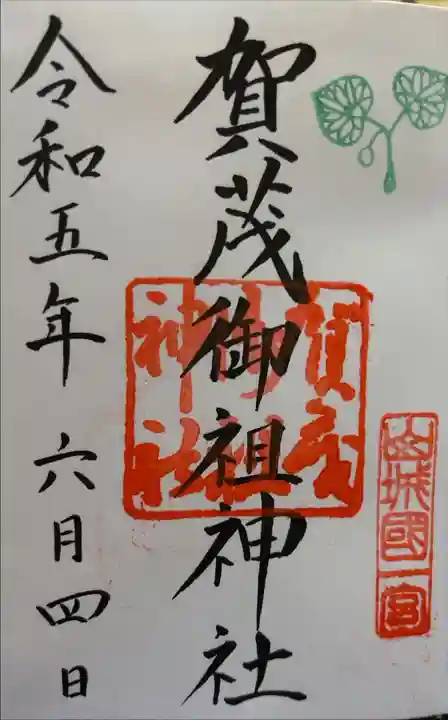 山城國一宮
賀茂御祖神社
賀茂
御祖
神社
令和五年六月四日